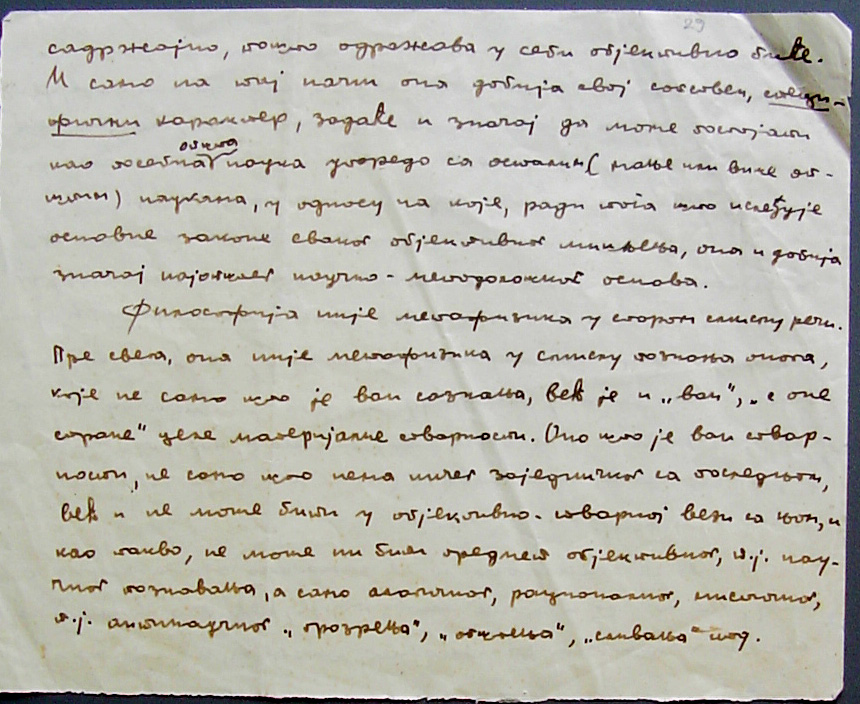 29
садржајно, пошто одражава у себи објективно биће.
И само на тај начин она добија свој сопствен, специ-
фични карактер, задаће и значај да може постојати
општа
као посебна наука упоредо са осталим (мање или више оп-
штим) наукама, у односу на које, ради тога што исцрпљује
основне законе сваког објективног мишљења, она и добија
значај најопштег научно-методолошког основа.
Философија није метафизика у старом смислу речи.
Пре свега, она није метафизика у смислу познања онога,
које не само што је ван сазнања, већ је и „ван“, „с оне
стране“ целе материјалне стварности. Оно што је ван ствар-
ности, не само што нема ничег заједничког са последњом,
већ и не може бити у објективно-стварној вези са њом, и
као такво, не може ни бити предмет објективног, т.ј. нау-
чног познавања, а само алогичног, рационалног, мистичног,
т.ј. антинаучног „прозрења“, „општења“, „сливања“ итд.